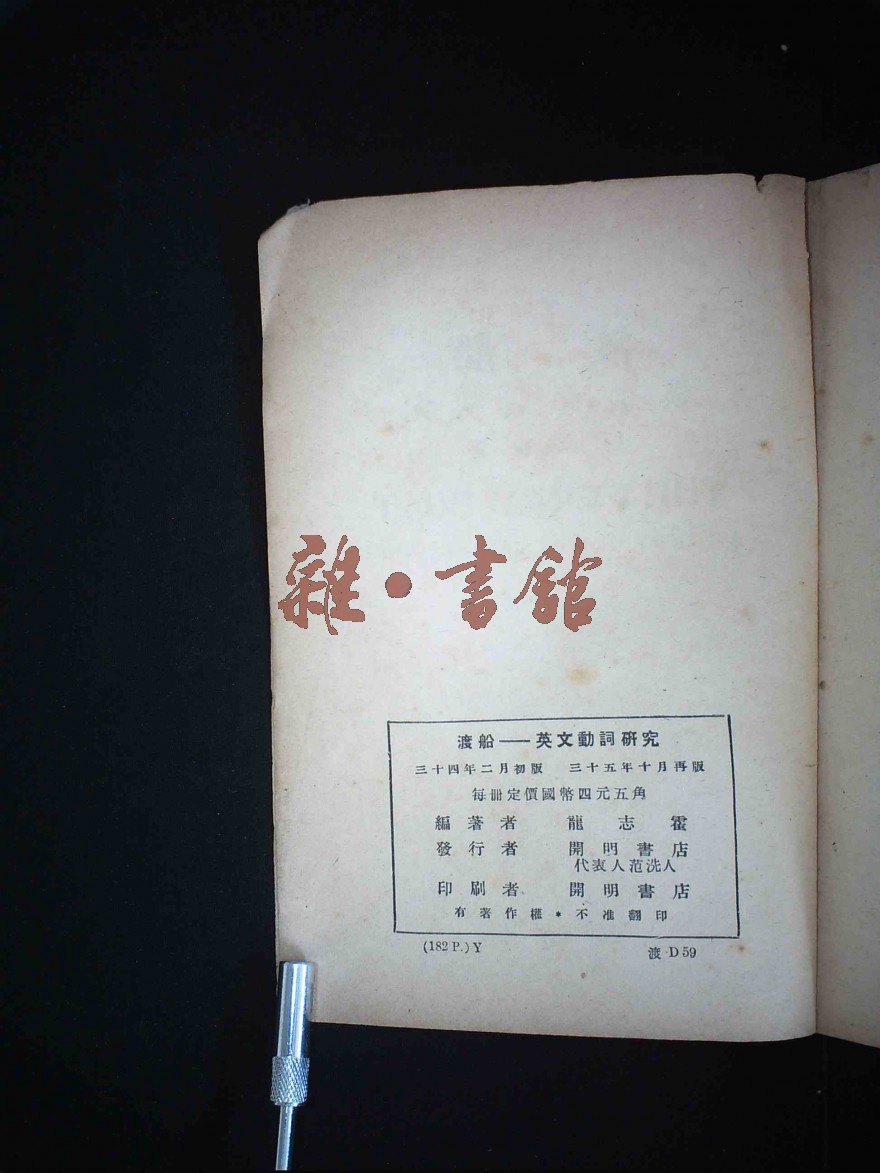 雜·書館
渡船——英文動詞研究
三十四年二月初版 三十五年十月再版
每冊定價國幣四元五角
編著者 龍志霍
發行者 開明書店
代表人范洗人
印刷者 開明書店
有著作權*不准翻印
(182 P.) Y 渡 D 59